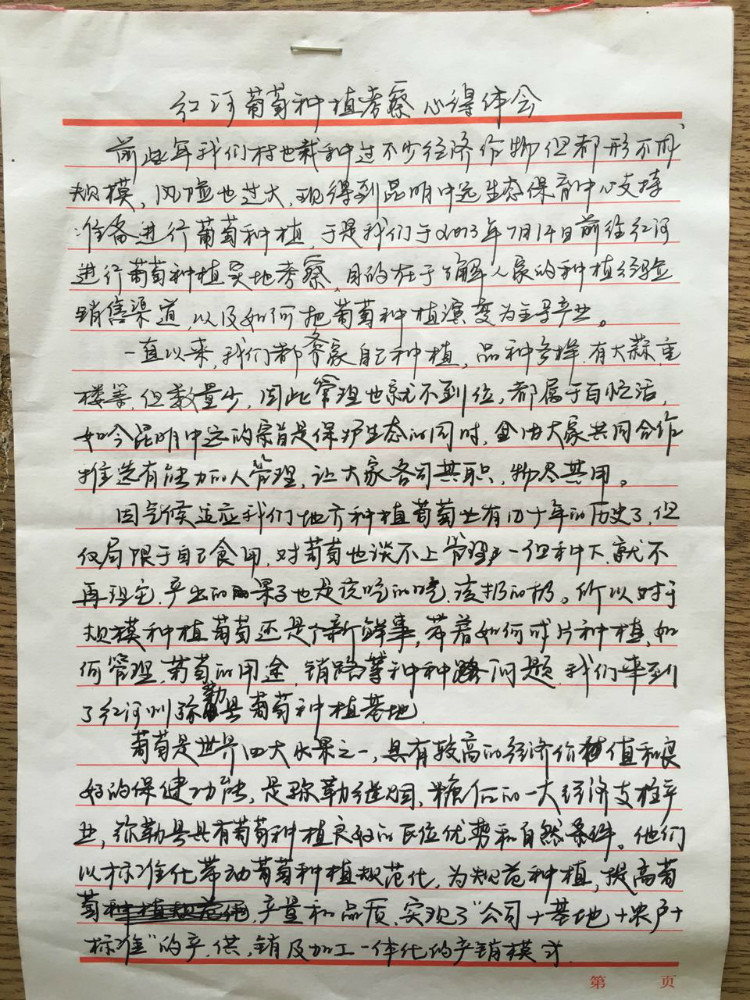 红河葡萄种植考察心得体会
前些年我们村也栽种过不少经济作物但都形不成
规模，风险也过大，现得到昆明中远生态保育中心支持
准备进行葡萄种植，于是我们于2013年7月14日前往红河
进行葡萄种植实地考察，目的在于了解人家的种植经验
销售渠道，以及如何把葡萄种植演变为主导产业。
一直以来，我们都各家自己种植，品种多样，有大蒜，重
楼等，但数量少，因此管理也就不到位，都属于白忙活，
如今昆明中远的宗旨是保护生态的同时，由大家共同合作
推选有能力的人管理，让大家各司其职，物尽其用。
因气候适应我们地方种植葡萄也有四十年的历史了，但
仅局限于自己食用，对葡萄也谈不上管理，一但种下，就不
再理它，产出的果子也是该吃的吃，该扔的扔。所以对于
规模种植葡萄还是个新鲜事，带着如何成片种植，如
何管理，葡萄的用途，销路等种种问题，我们来到
了红河州弥勒县葡萄种植基地。
葡萄是世界四大水果之一，具有较高的经济价值和良
好的保健功能，是弥勒继烟，糖后的一大经济支柱产
业，弥勒县具有葡萄种植良好的区位优势和自然条件。他们
以标准化带动葡萄种植规范化，为规范种植，提高葡
萄产量和品质，实现了“公司+基地+农户+
标准”的产，供，销及加工一体化的产销模式。
第 页